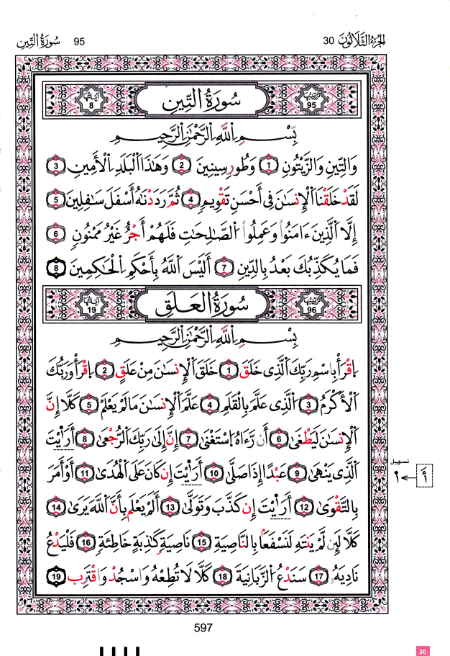 سورة التين 95 30 الجزء الثلاثون
8 آياتها سُورَةُ التِّينِ ترتيبها 95
بِسْمِ اللَّهِ الرَّحْمَٰنِ الرَّحِيمِ
وَالتِّينِ وَالزَّيْتُونِ 1 وَطُورِ سِينِينَ 2 وَهَٰذَا الْبَلَدِ الْأَمِينِ 3
لَقَدْ خَلَقْنَا الْإِنسَٰنَ فِي أَحْسَنِ تَقْوِيمٍ 4 ثُمَّ رَدَدْنَٰهُ أَسْفَلَ سَٰفِلِينَ 5
إِلَّا الَّذِينَ ءَامَنُوا وَعَمِلُوا الصَّٰلِحَٰتِ فَلَهُمْ أَجْرٌ غَيْرُ مَمْنُونٍ 6
فَمَا يُكَذِّبُكَ بَعْدُ بِالدِّينِ 7 أَلَيْسَ اللَّهُ بِأَحْكَمِ الْحَٰكِمِينَ 8
19 آياتها سُورَةُ الْعَلَقِ ترتيبها 96
بِسْمِ اللَّهِ الرَّحْمَٰنِ الرَّحِيمِ
اِقْرَأْ بِاسْمِ رَبِّكَ الَّذِي خَلَقَ 1 خَلَقَ الْإِنسَٰنَ مِنْ عَلَقٍ 2 اِقْرَأْ وَرَبُّكَ
الْأَكْرَمُ 3 الَّذِي عَلَّمَ بِالْقَلَمِ 4 عَلَّمَ الْإِنسَٰنَ مَا لَمْ يَعْلَمْ 5 كَلَّا إِنَّ
الْإِنسَٰنَ لَيَطْغَىٰ 6 أَن رَّءَاهُ اسْتَغْنَىٰ 7 إِنَّ إِلَىٰ رَبِّكَ الرُّجْعَىٰ 8 أَرَأَيْتَ
الَّذِي يَنْهَىٰ 9 عَبْدًا إِذَا صَلَّىٰ 10 أَرَأَيْتَ إِن كَانَ عَلَى الْهُدَىٰ 11 أَوْ أَمَرَ
بِالتَّقْوَىٰ 12 أَرَأَيْتَ إِن كَذَّبَ وَتَوَلَّىٰ 13 أَلَمْ يَعْلَم بِأَنَّ اللَّهَ يَرَىٰ 14
كَلَّا لَئِن لَّمْ يَنتَهِ لَنَسْفَعًا بِالنَّاصِيَةِ 15 نَاصِيَةٍ كَٰذِبَةٍ خَاطِئَةٍ 16 فَلْيَدْعُ
نَادِيَهُ 17 سَنَدْعُ الزَّبَانِيَةَ 18 كَلَّا لَا تُطِعْهُ وَاسْجُدْ وَاقْتَرِب 19
تسهيل
597
30